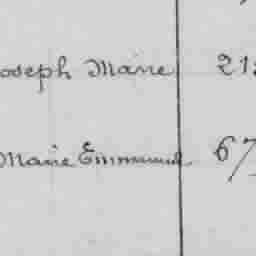 oseph Marie 21
Marie Emmanuel 67